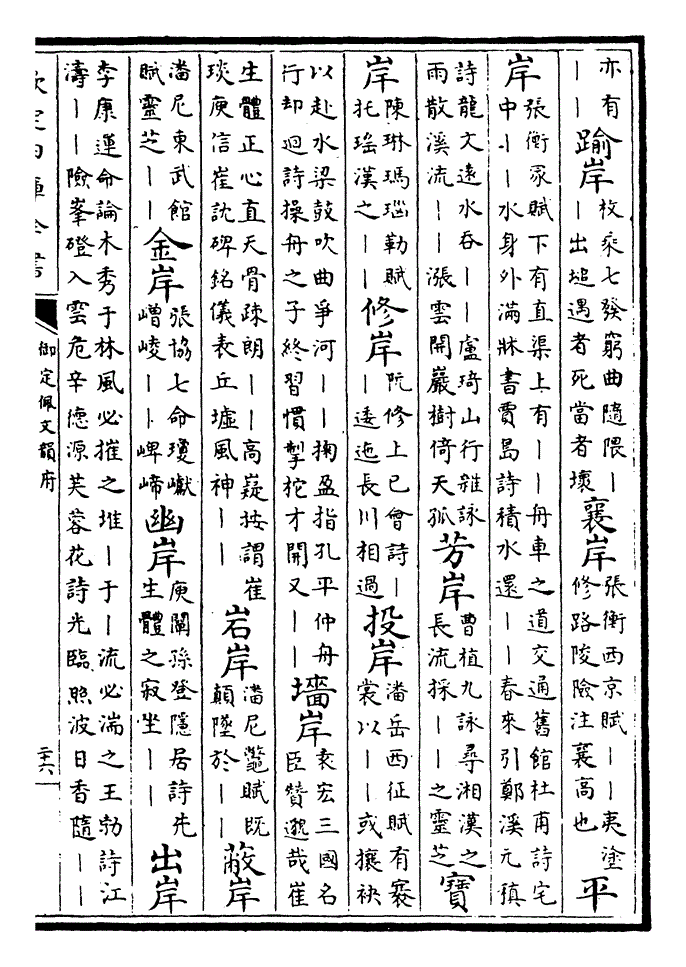 亦有——踰岸枚乘七發窮曲隨隈——出塠遇者死當者壞襄岸張衡西京賦——夷塗修路陵險注襄高也平
岸張衡冢賦下有直渠上有——舟車之道交通舊館杜甫詩宅中——水身外滿牀書賈島詩積水還——春來引鄭溪元稹
詩龍文遠水吞——盧琦山行雜詠雨散溪流——漲雲開巖樹倚天孤芳岸曹植九詠尋湘漢之長流採——之靈芝寶
岸陳琳瑪瑙勒賦托瑤漢之——修岸阮修上巳會詩——逶迤長川相過投岸潘岳西征賦有褰裳以——或攘袂
以赴水梁鼓吹曲爭河——掬盈指孔平仲舟行却迴詩操舟之子終習慣掣柁才開又——墻岸袁宏三國名臣贊邈哉崔
生體正心直天骨疎朗——高嶷按謂崔琰庾信崔訦碑銘儀表丘墟風神——岩岸潘尼鼈賦既顛墜於——蔽岸
潘尼東武館賦靈芝——金岸張協七命瓊巘嶒崚——崥崹幽岸庾闡孫登隱居詩先生體之寂坐——出岸
李康運命論木秀于林風必摧之堆—于—流必湍之王勃詩江濤——險峯磴入雲危辛德源芙蓉花詩光臨照波日香隨——
欽定四庫全書
御定佩文韻府
二十六